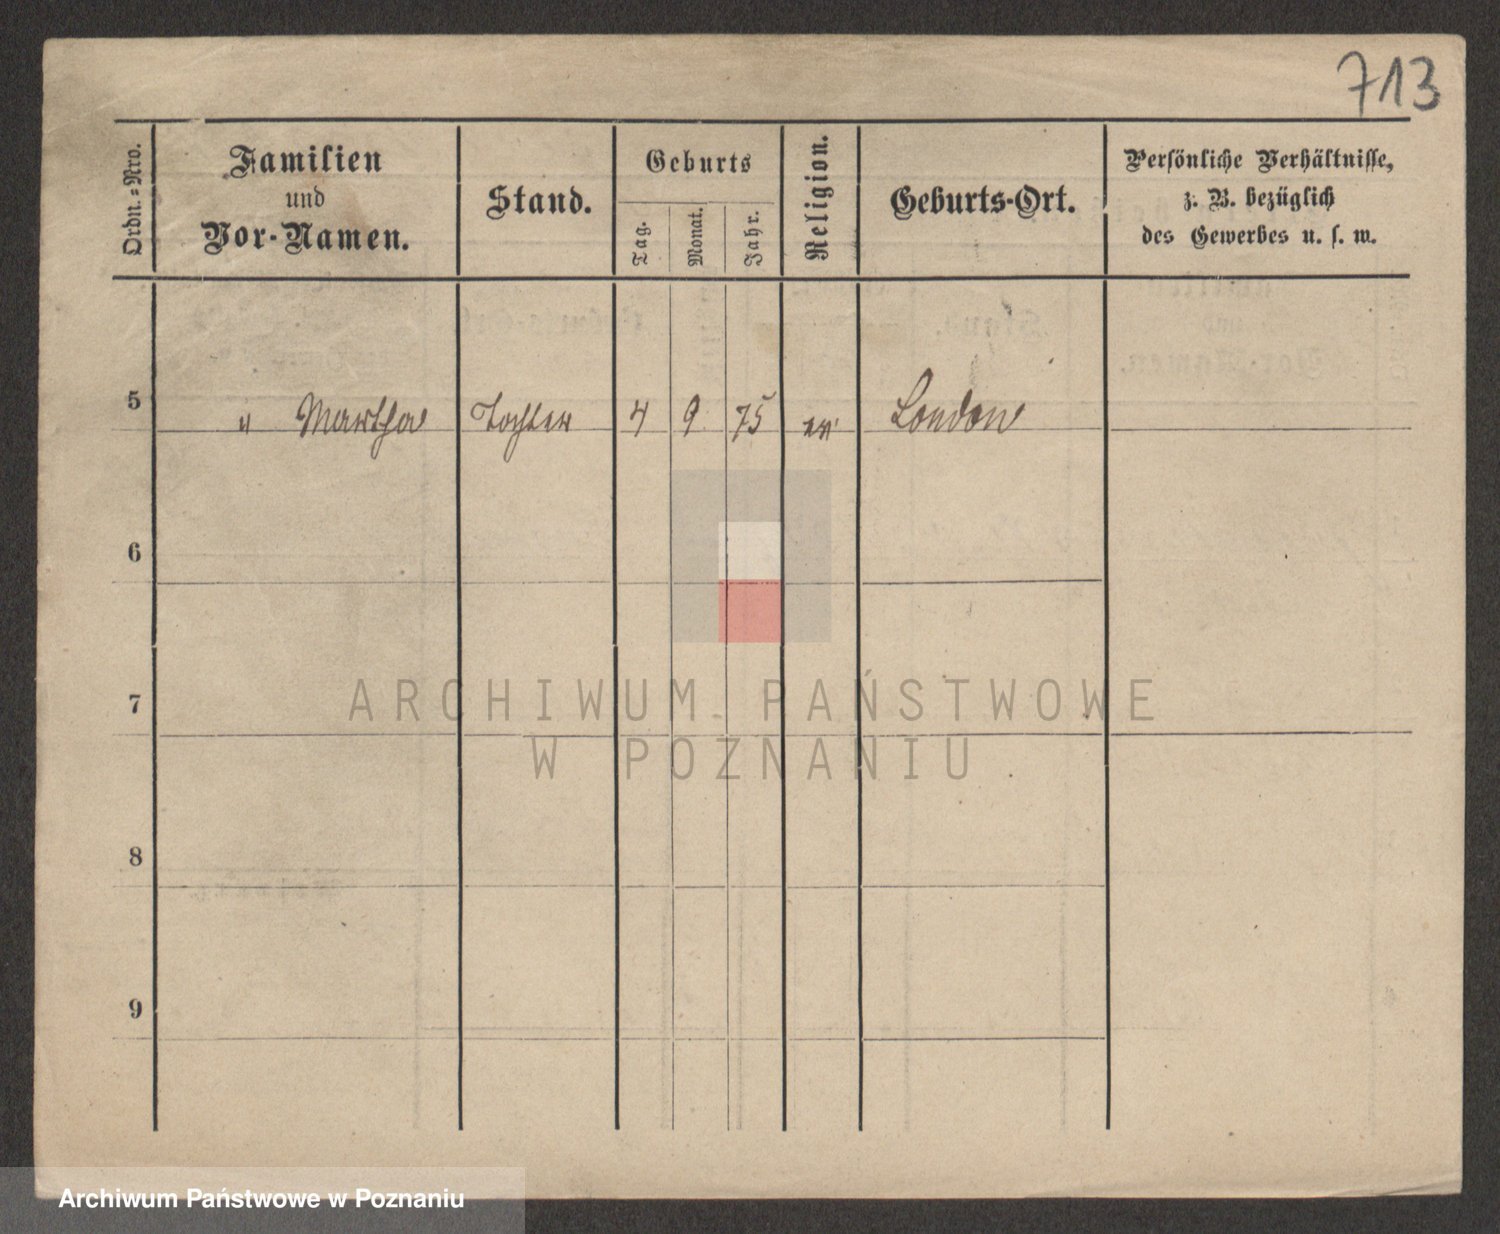 713
Ordn.-Nro.
Familien
und
Vor-Namen.
Stand.
Geburts
Tag.
Monat.
Jahr.
Religion.
Geburts-Ort.
Persönliche Verhältnisse,
z. B. bezüglich
des Gewerbes u. s. w.
5 " Martha Tochter 4 9 75 ev London
6
7
8
9
ARCHIWUM PAŃSTWOWE
W POZNANIU
Archiwum Państwowe w Poznaniu